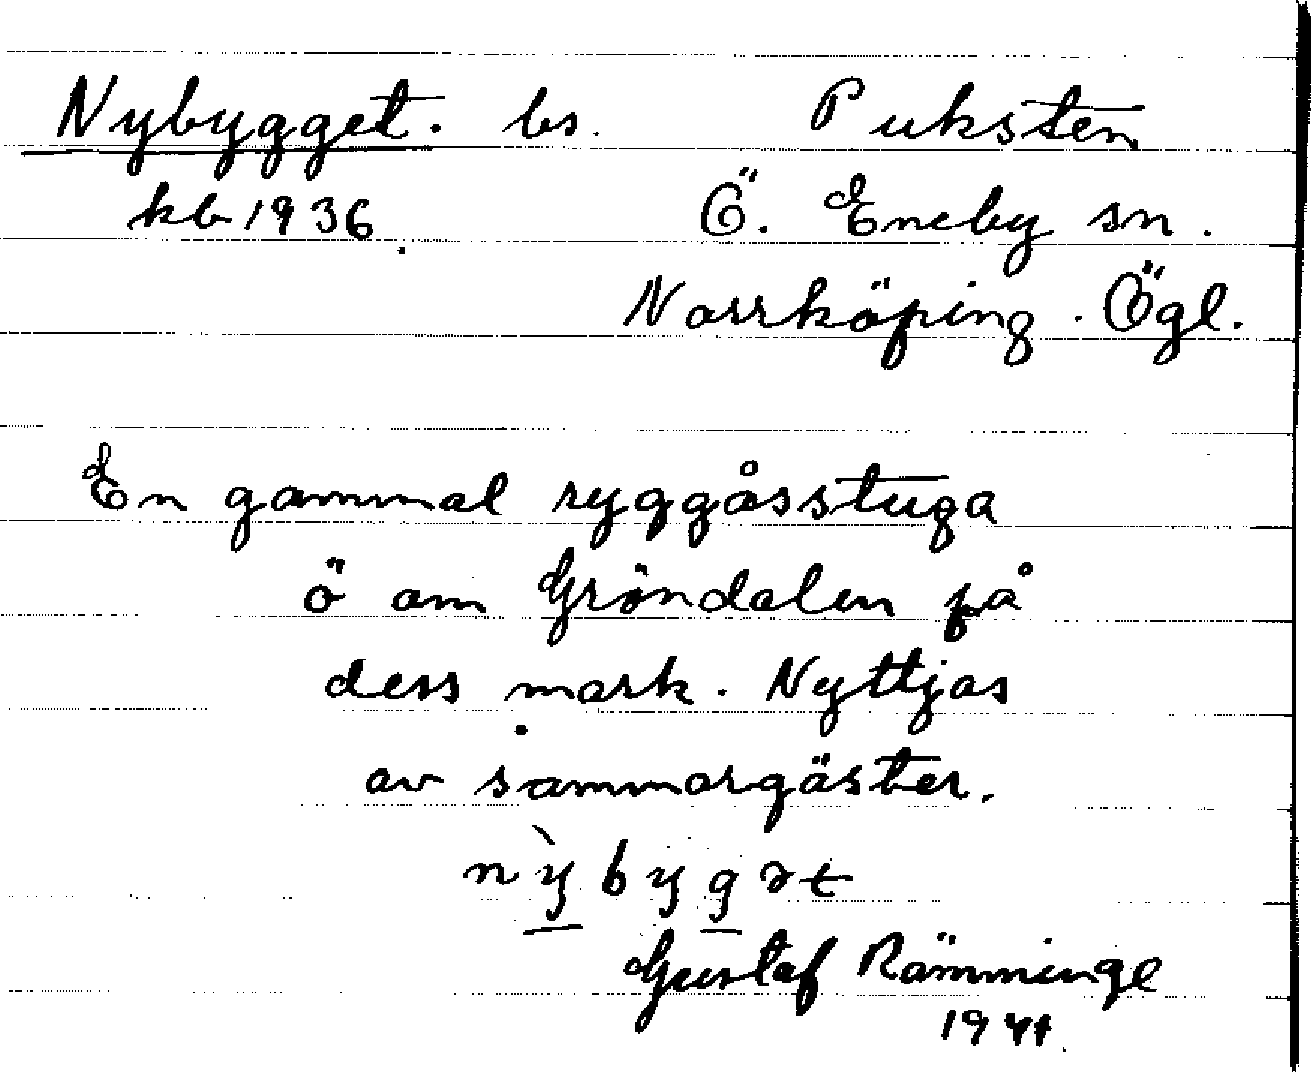 Nybygget. bs. Puksten
kb 1936. Ö. Eneby sn.
Norrköping. Ögl.
En gammal ryggåsstuga
ö om Gröndalen på
dess mark. Nyttjas
av sommargäster.
nỳbygət
Gustaf Rämminge